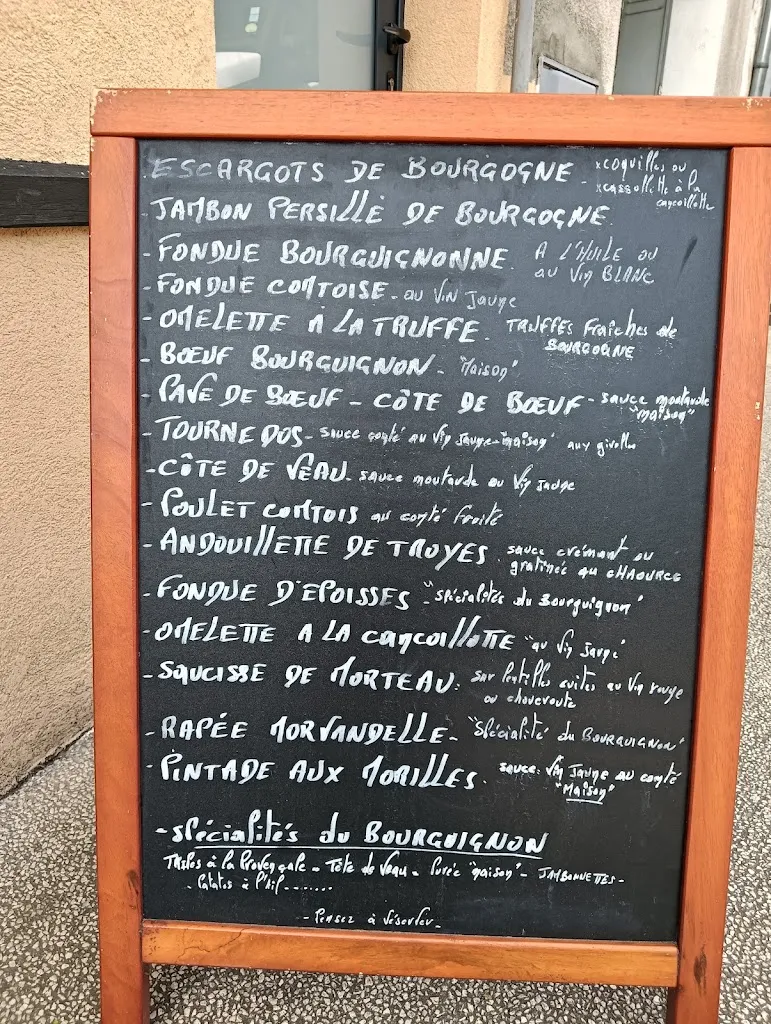 ESCARGOTS DE BOURGOGNE - x coquilles ou
x cassollette à la
cancoillotte
JAMBON PERSILLÉ DE BOURGOGNE
- FONDUE BOURGUIGNONNE. A L'HUILE ou
au Vin BLANC
- FONDUE COMTOISE - au VIN Jaune
- OMELETTE A LA TRUFFE. TRUFFES fraîches de
BOURGOGNE
- BŒUF BOURGUIGNON - "Maison"
- PAVÉ DE BŒUF - CÔTE DE BŒUF - sauce moutarde
"maison"
- TOURNEDOS - sauce comté au Vin Jaune "maison" aux girolles
- CÔTE DE VEAU. sauce moutarde au Vin Jaune
- POULET COMTOIS au comté fruité
- ANDOUILLETTE DE TROYES. sauce crémant ou
gratinée au CHAOURCE
- FONDUE D'EPOISSES - "spécialités du Bourguignon"
- OMELETTE A LA cancoillotte "au Vin Jaune"
- SAUCISSE DE MORTEAU. sur lentilles cuites au Vin rouge
ou choucroute
- RAPÉE MORVANDELLE - "Spécialité du BOURGUIGNON"
- PINTADE AUX MORILLES. sauce: Vin Jaune au comté
"Maison"
- spécialités du BOURGUIGNON
à la Provençale - Tête de Veau - Purée "maison" - JAMBONNETTES -
- Patates à l'Ail - - - - - - -
- Pensez à réserver -